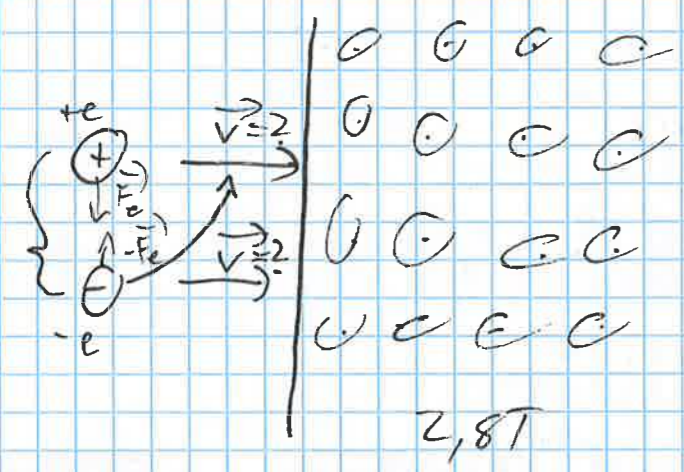 +e
v=?
+
Fe
-Fe
v=?
-
-e
2,8T